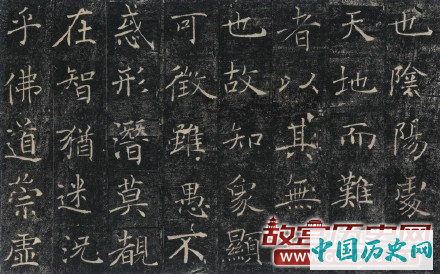 也陰陽處
天地而難
者以其無
也故知象顯
可徵雖愚不
惑形潛莫覩
在智猶迷況
乎佛道崇虛
故宫历史网
中国历史网